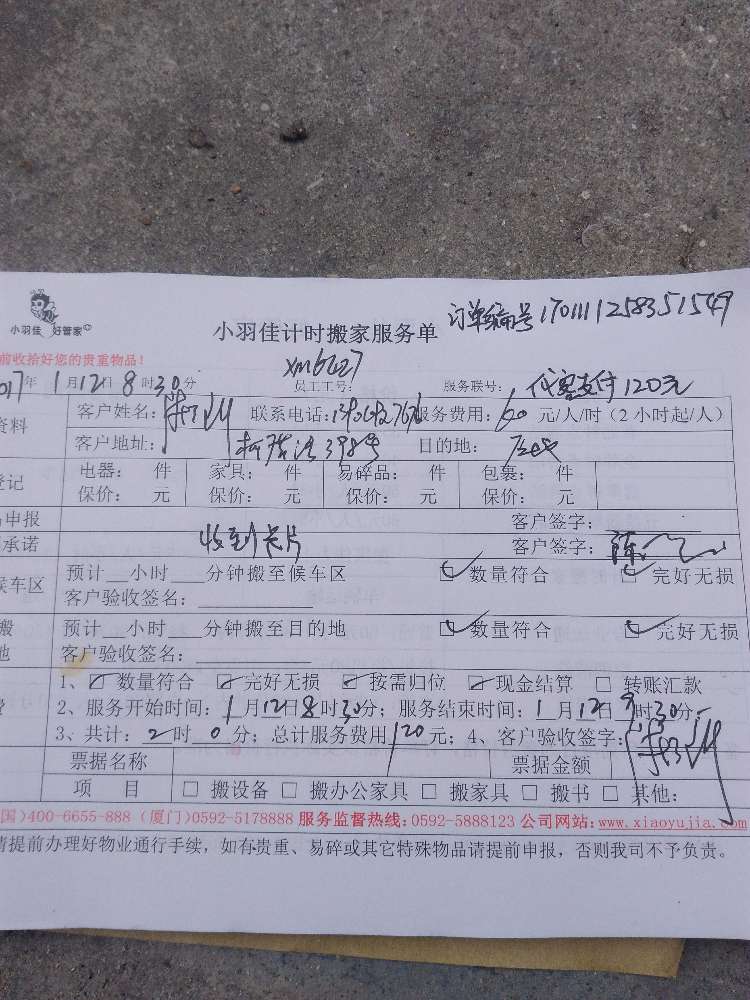 小羽佳 好管家
小羽佳计时搬家服务单 订单编号 170111125835 1549
前收拾好您的贵重物品!
xm6627
017年 1月12日8时30分 员工工号: 服务联号: 代客支付120元
资料 客户姓名: 联系电话: 服务费用:60元/人/时(2小时起/人)
客户地址: 398号 目的地:
登记 电器: 件 家具: 件 易碎品: 件 包裹: 件
保价: 元 保价: 元 保价: 元 保价: 元
申报 客户签字:
承诺 收到卡片 客户签字:陈
候车区 预计__小时___分钟搬至候车区 ☑数量符合 ☑完好无损
客户验收签名:
搬 预计__小时___分钟搬至目的地 ☑数量符合 ☑完好无损
地 客户验收签名:
1、☑数量符合 ☑完好无损 ☑按需归位 ☑现金结算 □转账汇款
2、服务开始时间:1月12日8时30分;服务结束时间:1月12日9时30分;
3、共计:2时0分;总计服务费用120元;4、客户验收签字:
票据名称 票据金额
项 目 □ 搬设备 □ 搬办公家具 □ 搬家具 □ 搬书 □ 其他:
国)400-6655-888 (厦门)0592-5178888 服务监督热线:0592-5888123 公司网站:www.xiaoyujia.com
请提前办理好物业通行手续,如有贵重、易碎或其它特殊物品请提前申报,否则我司不予负责。